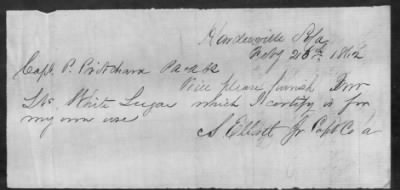 Hardeeville So Ca
Feby 28th 1862
Capt. P. Pritchard
Will please furnish Two
Lbs. White Sugar which I certify is for
my own use
S. Elliott Jr Capt Co a